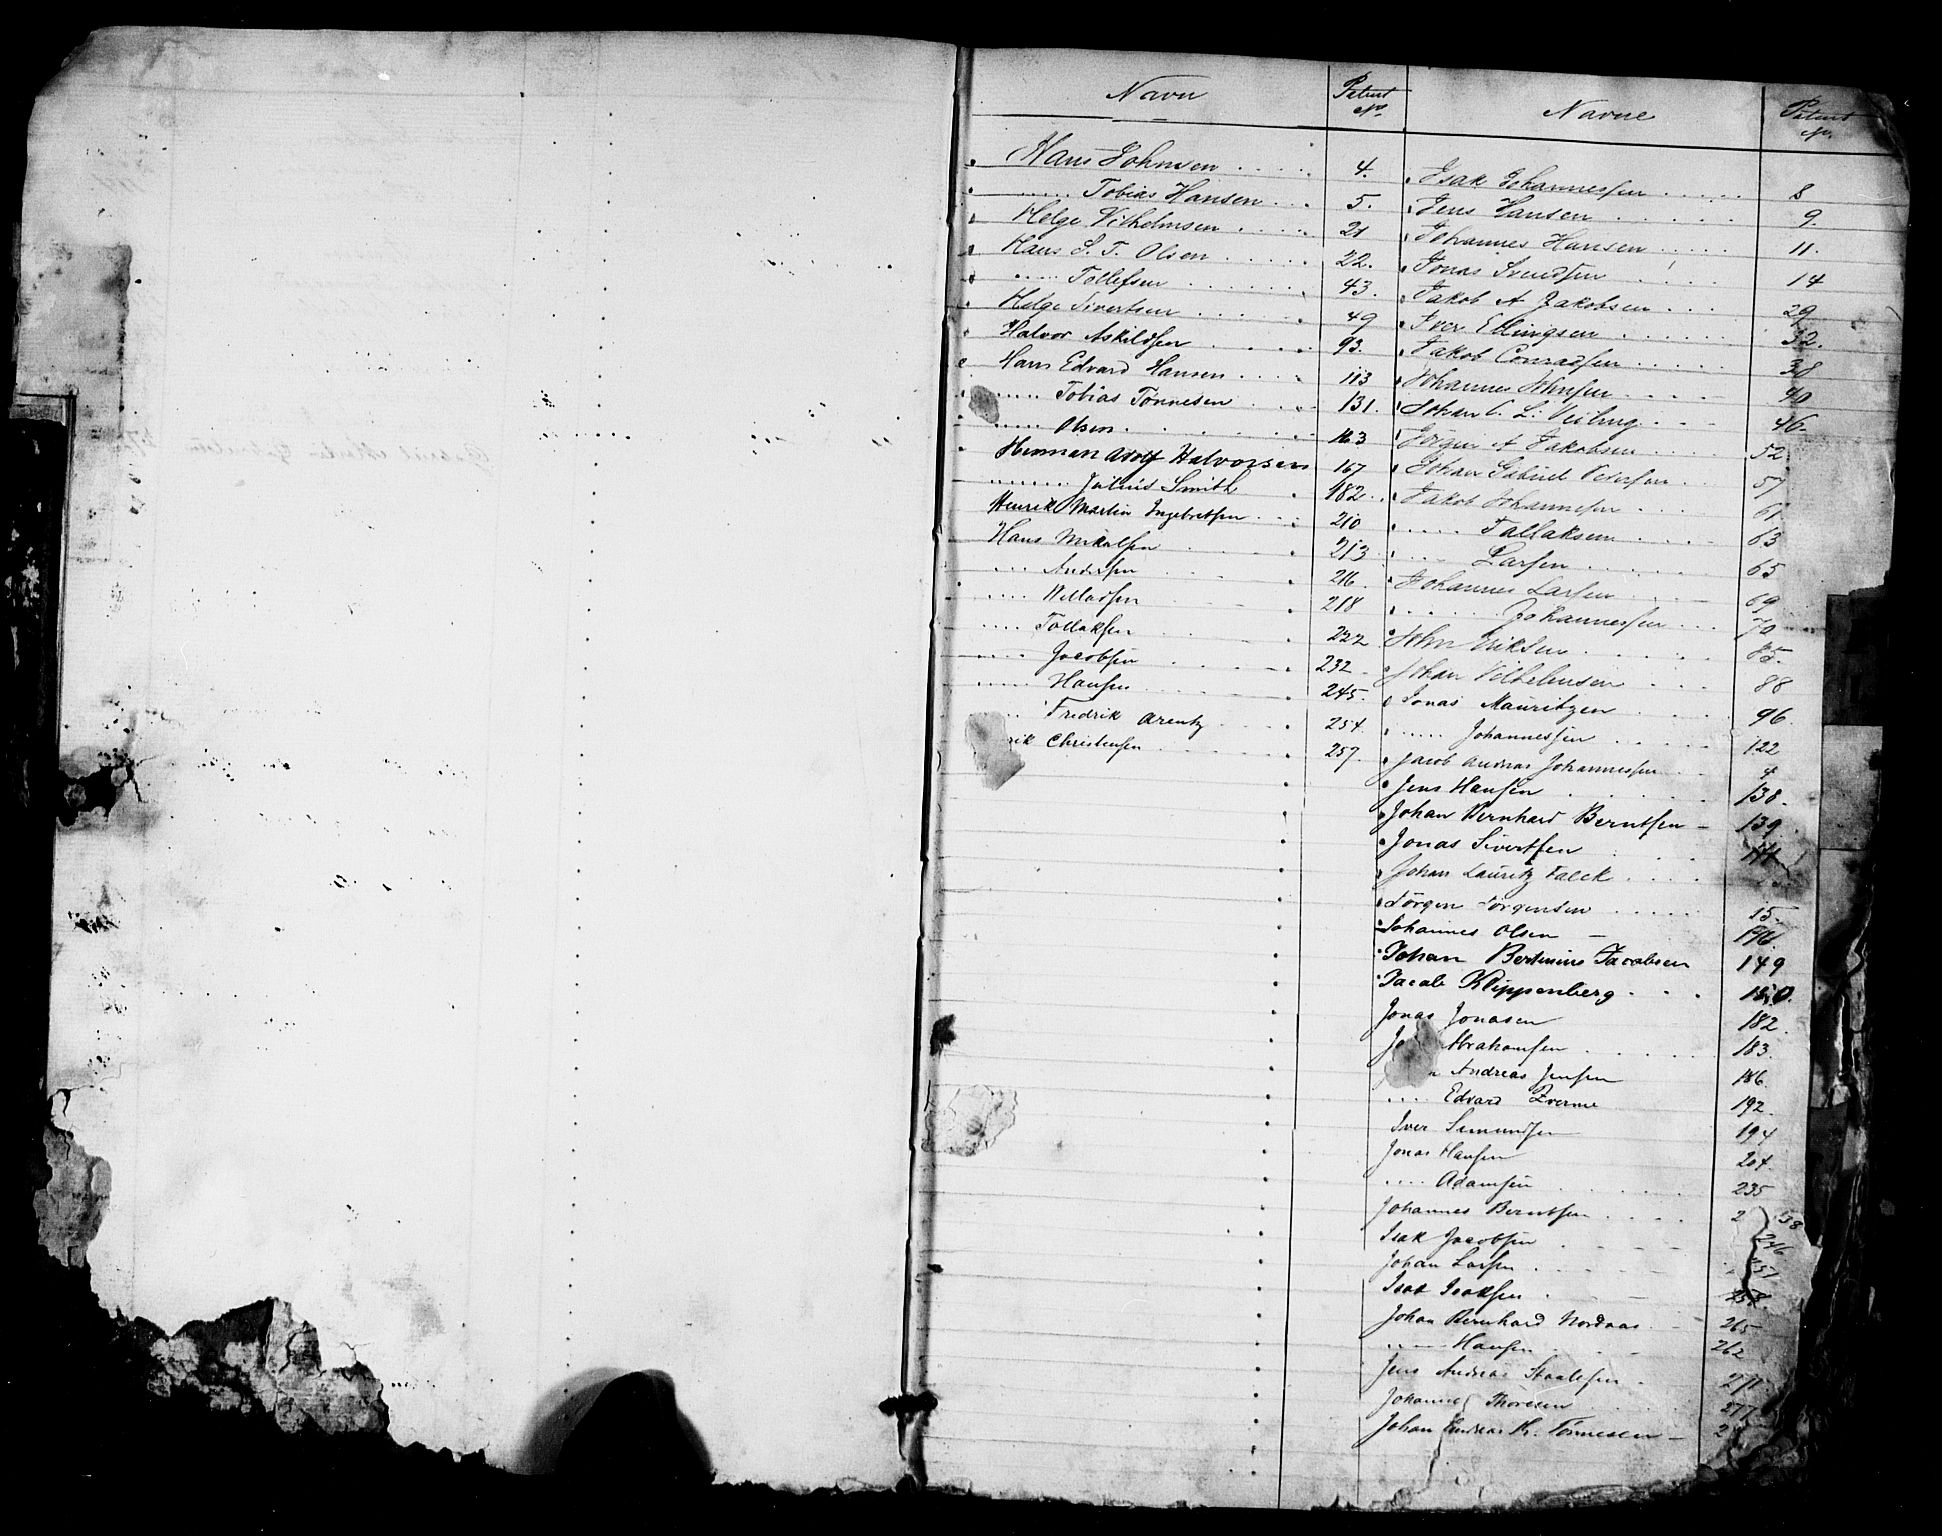 Navn
Patent No.
Hans Johnsen . . . . . 4.
" Tobias Hansen . . . 5.
Helge Vilhelmsen . . . . 21
Hans S. T. Olsen . . . . . 22.
" Tollefsen . . . . . . 43.
Helge Sivertsen . . . . . 49
Halvor Askildsen . . . . . 93.
Hans Edvard Hansen . . . . 113
" Tobias Tønnesen . . . . 131.
" Olsen . . . . . . . 163
Herman Adolf Halvorsen 167
" Julius Smith . 182.
Henrik Martin Ingebretsen . . . 210
Hans Mikalsen . . . 213
" Andersen . . . 216.
" Willadsen . . . 218
" Tollaksen . . . 222
" Jacobsen . . . 232
" Hansen . . . 245.
" Fredrik Arentz . . . 254.
rik Christensen . . . 257.
Navne
Patent No.
Isak Johannessen . . . . . 8
Jens Hansen . . . . . . 9.
Johannes Hansen . . . . 11.
Jonas Svendsen . . . . 14
Jakob A. Jakobsen . . . 29
Iver Ellingsen . . . . . . 32.
Jakob Conradsen . . . . 38
Johannes Johnsen . . . . 40
Johan C. L. . . . 46.
Jörgen A Jakobsen . . . 52
Johan Gabriel Petersen . . 57
Jakob Johannesen . . . 61.
" Tallaksen . . . 63
" Larsen . . . . . 65
Johannes Larsen . . . . 69
" Johannessen . . . 70
John Eriksen . . . . . 85.
Johan Vilhelmsen . . . 88
Jonas Mauritzen . . . . 96
" Johannessen . . . . 122
Jacob Andreas Johannessen . . 4
Jens Hansen . . . . . 138.
Johan Bernhard Berntsen – 139
Jonas Sivertsen . . .
Johan Lauritz Falck . . . .
Jörgen Jörgensen . . . . . 15
Johannes Olsen –
Johan Bertinius Jacobsen 149
Jacob Klippenberg . . . 150.
Jonas Jonasen 182.
Abrahamsen . . . . 183.
Andreas Jensen 186.
" Edvard 192.
Iver Simundsen 194
Jonas Hansen 204.
" Adamsen . . . . . 235
Johannes Berntsen . . . . 238
Isak Jacobsen . . . . 246
Johan Larsen . . . . 251
Isak Isaksen . . . 258.
Johan Bernhard Nordaas . – 265
" Hansen . . . 262
Jens Andreas Staalesen . 271.
Johannes Thoresen . . . . 277
Johan Andreas Kr. Tönnesen – 2